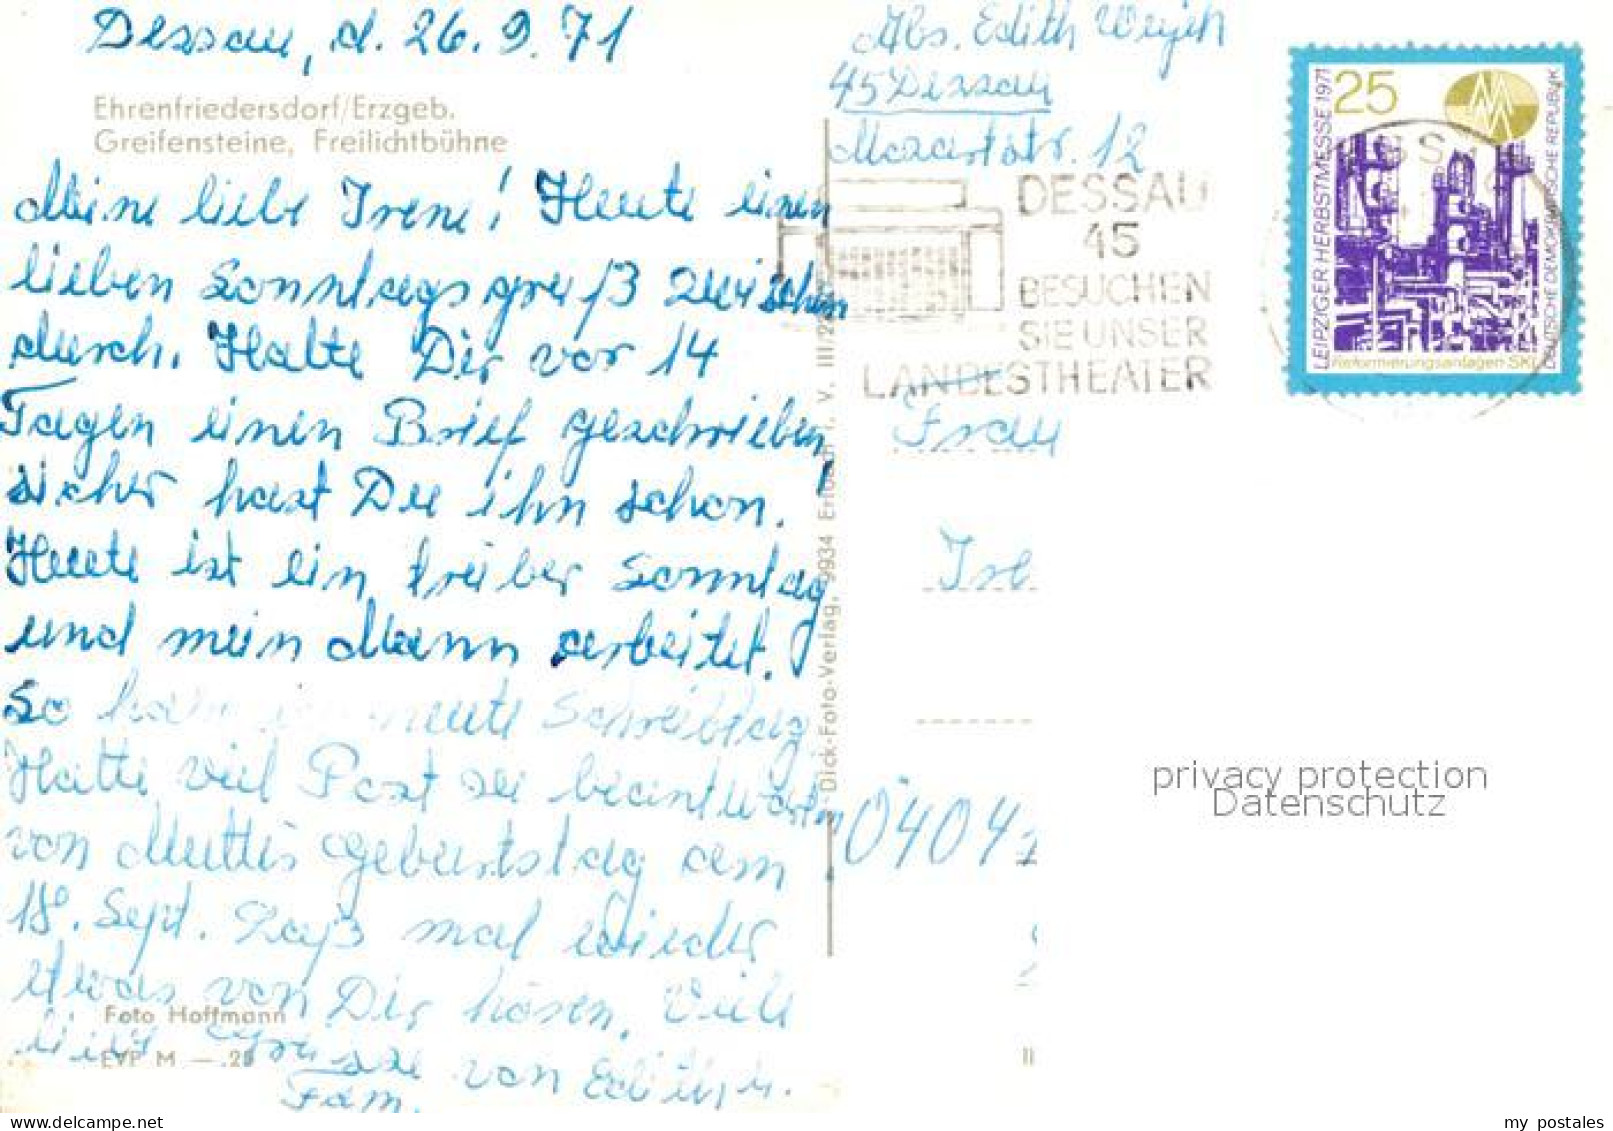 Dessau, d. 26.9.71
Ehrenfriedersdorf/Erzgeb.
Greifensteine, Freilichtbühne
Meine liebe Irene! Heute einen
lieben Sonntagsgruß zwischen
durch. Hatte Dir vor 14
Tagen einen Brief geschrieben,
sicher hast Du ihn schon.
Heute ist ein trüber Sonntag
und mein Mann arbeitet.
So habe ich heute Schreibtag.
Hatte viel Post zu beantworten
von Muttis Geburtstag am
18. Sept. Laß mal wieder
etwas von Dir hören. Viele
liebe Grüße von Edith u.
Fam.
Foto Hoffmann
EVP M —.20
Dick-Foto-Verlag, 9934 Erlbach i. V. III/2
Abs. Edith
45 Dessau
Mozartstr. 12
DESSAU
45
BESUCHEN
SIE UNSER
LANDESTHEATER
LEIPZIGER HERBSTMESSE 1971
25
MM
DEUTSCHE DEMOKRATISCHE REPUBLIK
Reformierungsanlagen SKL
Frau
0404
privacy protection
Datenschutz
delcampe.net
my_postales